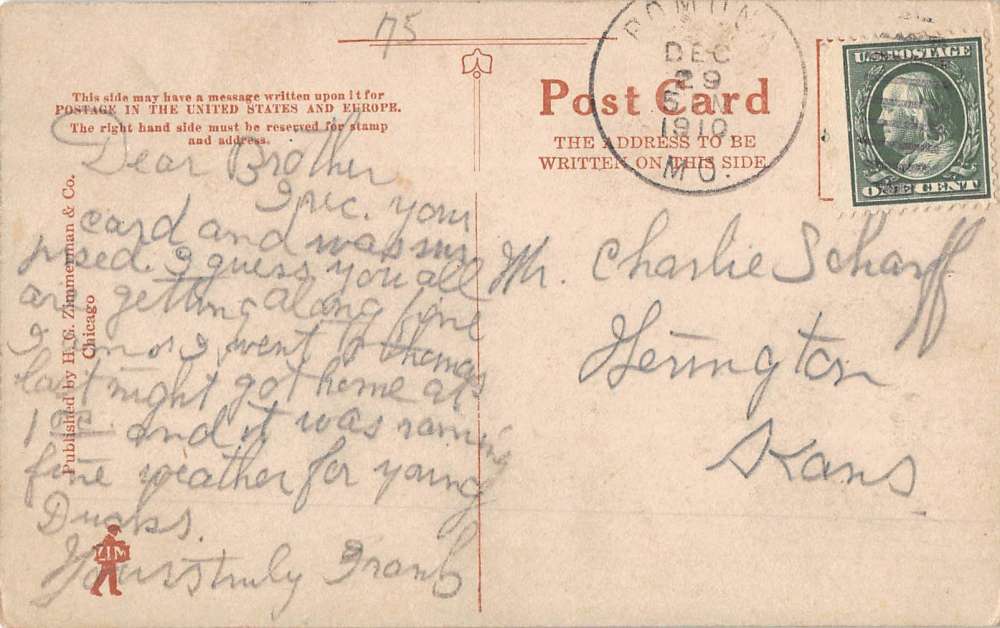 75
This side may have a message written upon it for
POSTAGE IN THE UNITED STATES AND EUROPE.
The right hand side must be reserved for stamp
and address.
Dear Brother
I rec. your
card and was sur
prised. I guess you all
are getting along fine
I am o I went to thomas
last night got home at
1 oc. and it was raining
fine weather for young
Ducks.
Yours truly Frank
Published by H. G. Zimmerman & Co.
Chicago
ZIM
Post Card
THE ADDRESS TO BE
WRITTEN ON THIS SIDE.
DEC
29
1910
MO.
U.S. POSTAGE
ONE CENT
Mr. Charlie Scharff
Herington
Kans